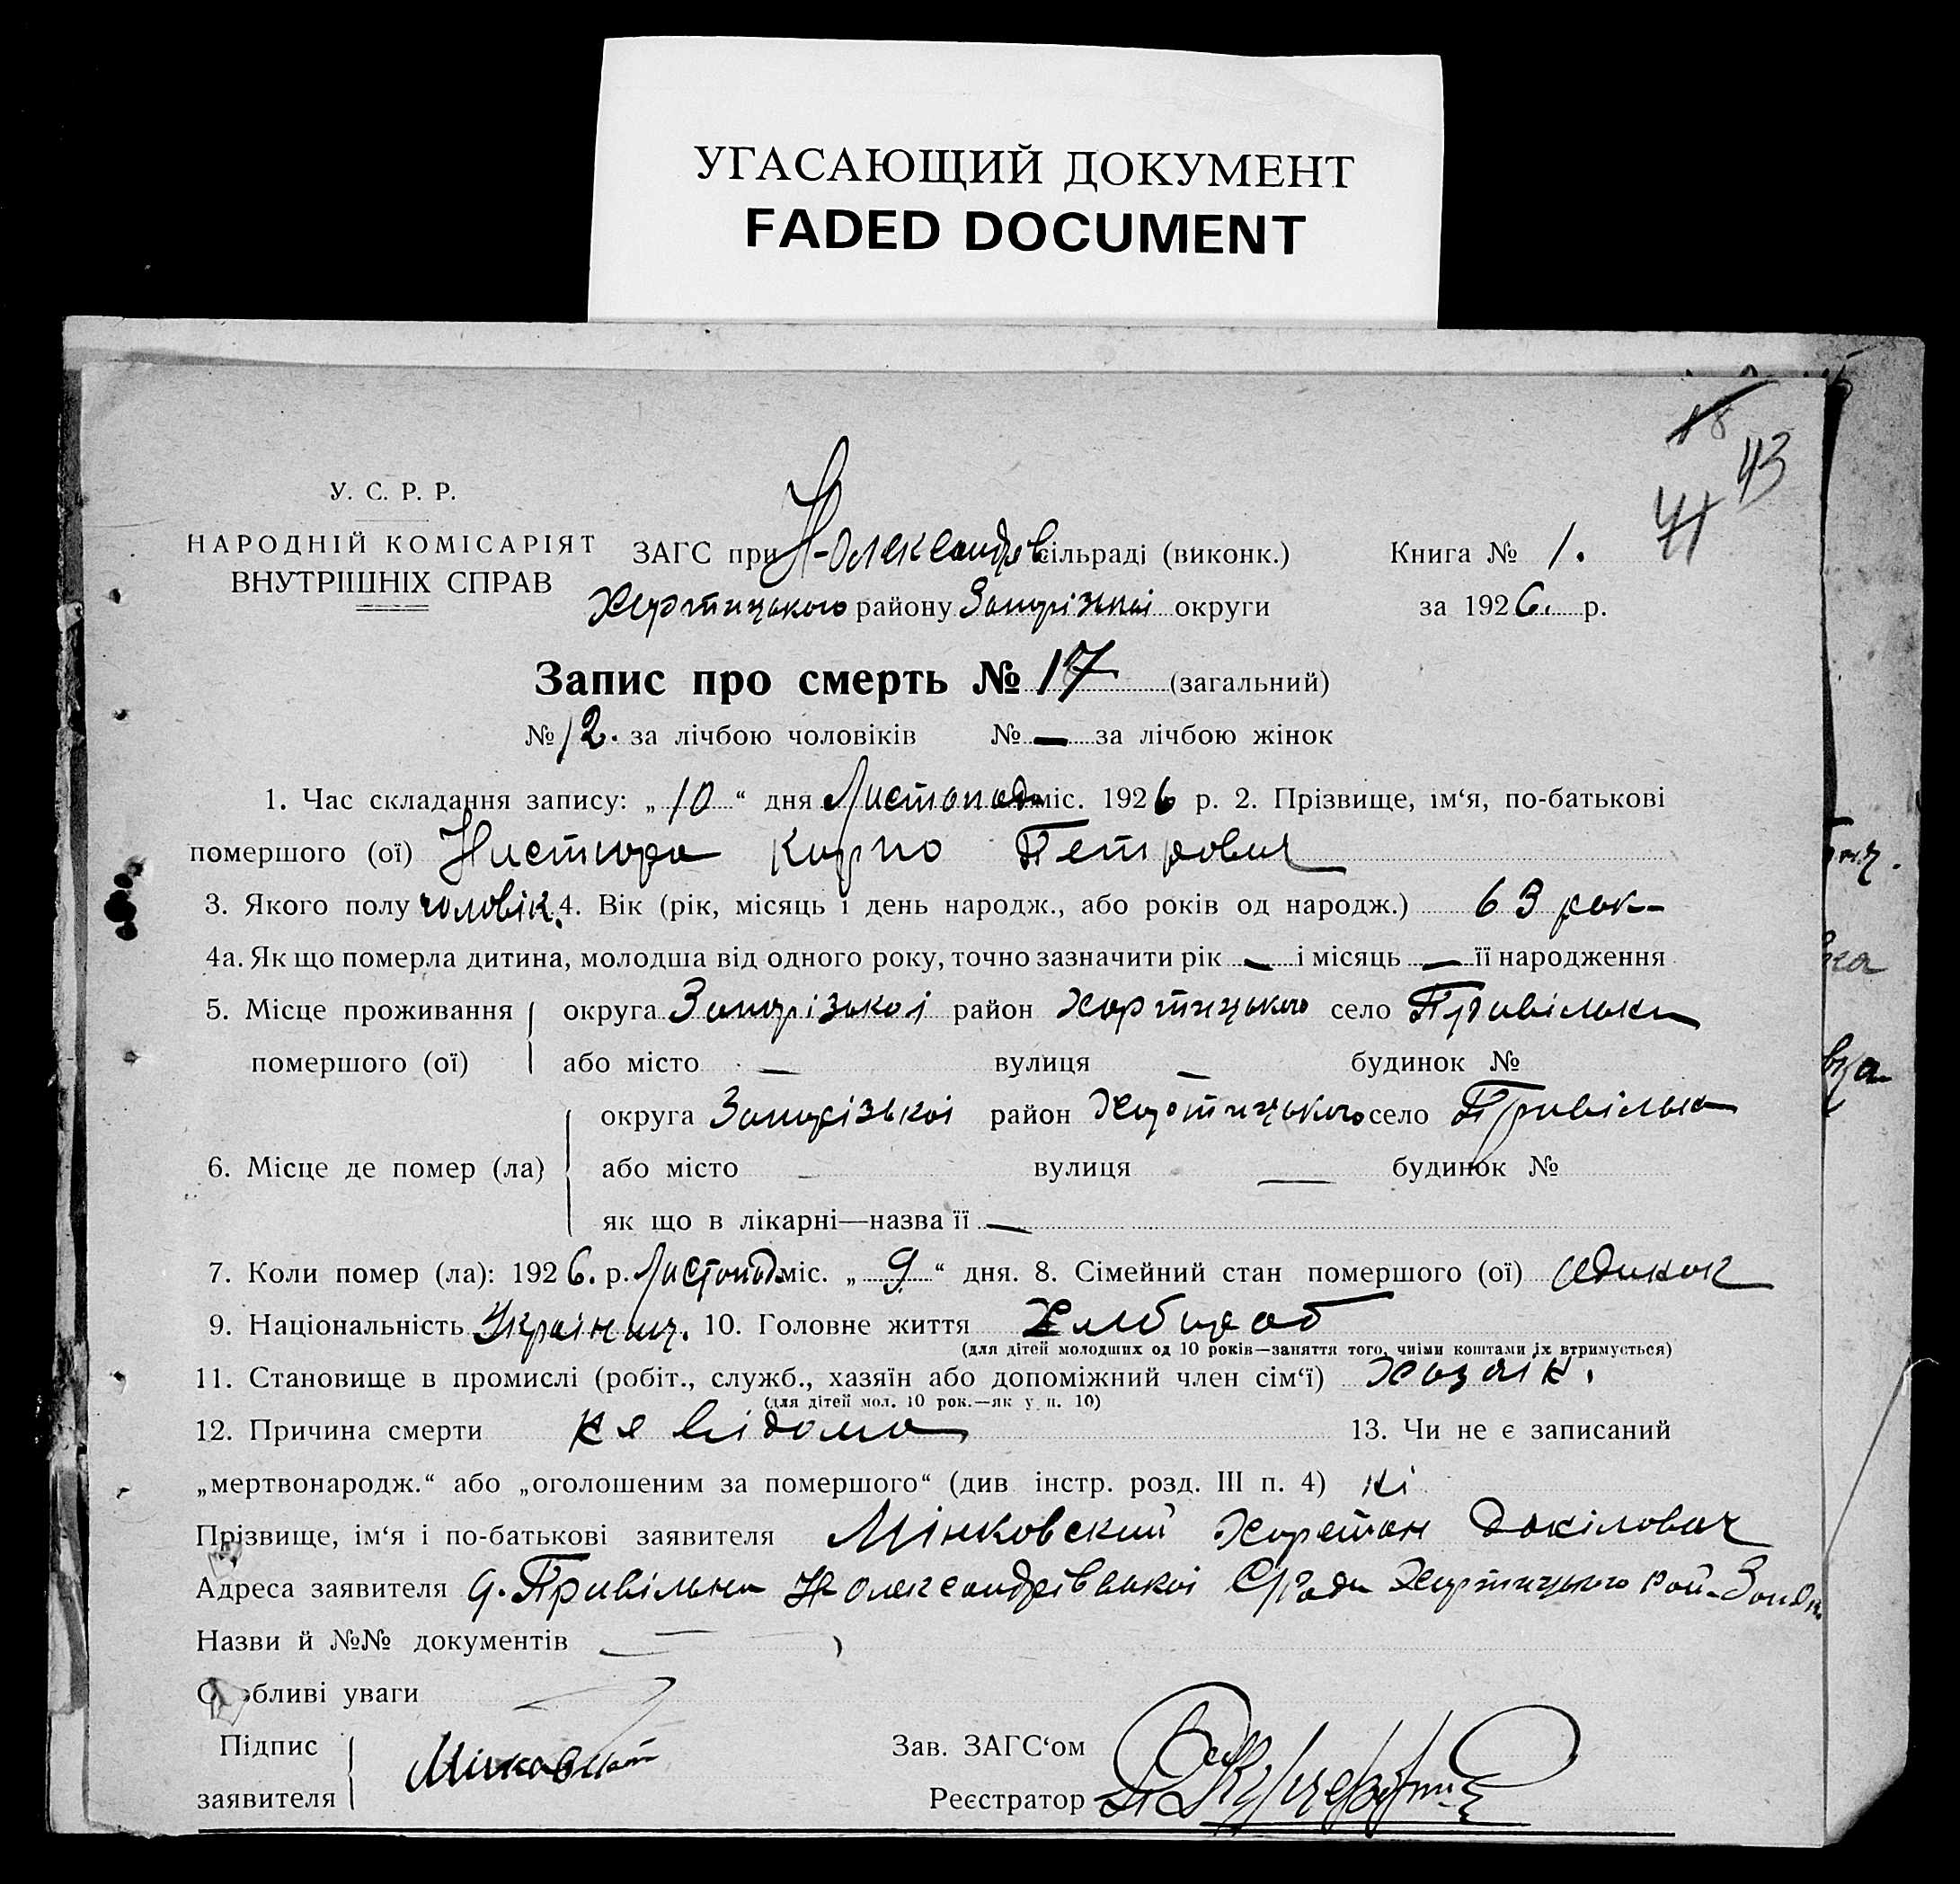 УГАСАЮЩИЙ ДОКУМЕНТ
FADED DOCUMENT
18
43
41
У. С. Р. Р.
НАРОДНІЙ КОМІСАРІЯТ
ВНУТРІШНІХ СПРАВ
ЗАГС при Н-Олександрів сільраді (виконк.) Книга № 1.
Хортицького району Запорізької округи за 1926. р.
Запис про смерть № 17 (загальний)
№ 12. за лічбою чоловіків № — за лічбою жінок
1. Час складання запису: „10“ дня Листопада міс. 1926 р. 2. Прізвище, ім‘я, по-батькові
помершого (ої) Карпо Петрович
3. Якого полу чоловік. 4. Вік (рік, місяць і день народж., або років од народж.) 63 рок-
4а. Як що померла дитина, молодша від одного року, точно зазначити рік — і місяць — її народження
5. Місце проживання округа Запорізької район Хортицького село Привільна
помершого (ої) або місто — вулиця — будинок №
округа Запорізької район Хортицького село Привільна
6. Місце де помер (ла) або місто — вулиця — будинок №
як що в лікарні—назва її —
7. Коли помер (ла): 1926. р. Листопад міс. „9“ дня. 8. Сімейний стан помершого (ої) одинок
9. Національність Українец. 10. Головне життя Хлібороб
(для дітей молодших од 10 років—заняття того, чиїми коштами їх втримується)
11. Становище в промислі (робіт., служб., хазяїн або допоміжний член сім‘ї) Хазяїн.
(для дітей мол. 10 рок.—як у п. 10)
12. Причина смерти не відома 13. Чи не є записаний
„мертвонародж.“ або „оголошеним за помершого“ (див інстр. розд. III п. 4) ні
Прізвище, ім‘я і по-батькові заявителя Мінковский Харетон Данілович
Адреса заявителя д. Привільна Н Олександрівської С/ради Хортицького рай-
Назви й №№ документів —
Особливі уваги
Підпис Мінковский Зав. ЗАГС‘ом
заявителя Реєстратор